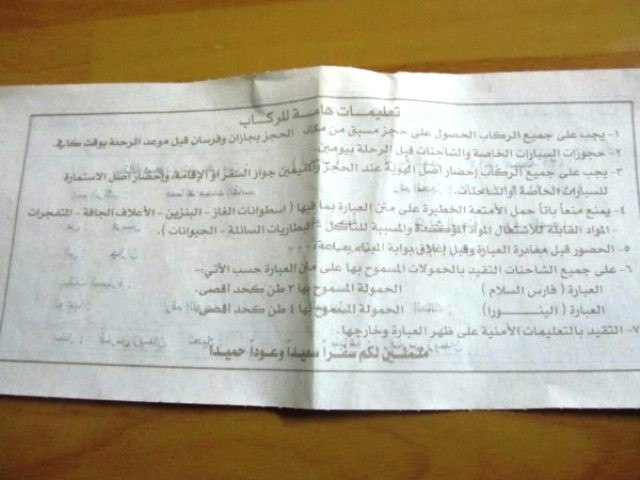 تعليمات هامة للركاب
١- يجب على جميع الركاب الحصول على حجز مسبق من مكان الحجز بجازان وفرسان قبل موعد الرحلة بوقت كافي
٢- حجوزات السيارات الخاصة والشاحنات قبل الرحلة بيومين.
٣- يجب على جميع الركاب إحضار أصل الهوية عند الحجز وللمقيمين جواز السفر أو الإقامة، وإحضار أصل الاستمارة
للسيارات الخاصة أو الشاحنات.
٤- يمنع منعاً باتاً حمل الأمتعة الخطيرة على متن العبارة بما فيها ( اسطوانات الغاز - البنزين - الأعلاف الجافة - المتفجرات
- المواد القابلة للاشتعال المواد المؤكسدة والمسببة للتآكل - البطاريات السائلة - الحيوانات ).
٥- الحضور قبل مغادرة العبارة وقبل إغلاق بوابة الميناء بساعة.
٦- على جميع الشاحنات التقيد بالحمولات المسموح بها على متن العبارة حسب الآتي:-
العبارة ( فارس السلام ) الحمولة المسموح بها ٣ طن كحد أقصى.
العبارة ( البنـــورا ) الحمولة المسموح بها ٤ طن كحد أقصى.
٧- التقيد بالتعليمات الأمنية على ظهر العبارة وخارجها.
متمنين لكم سفراً سعيداً وعوداً حميداً